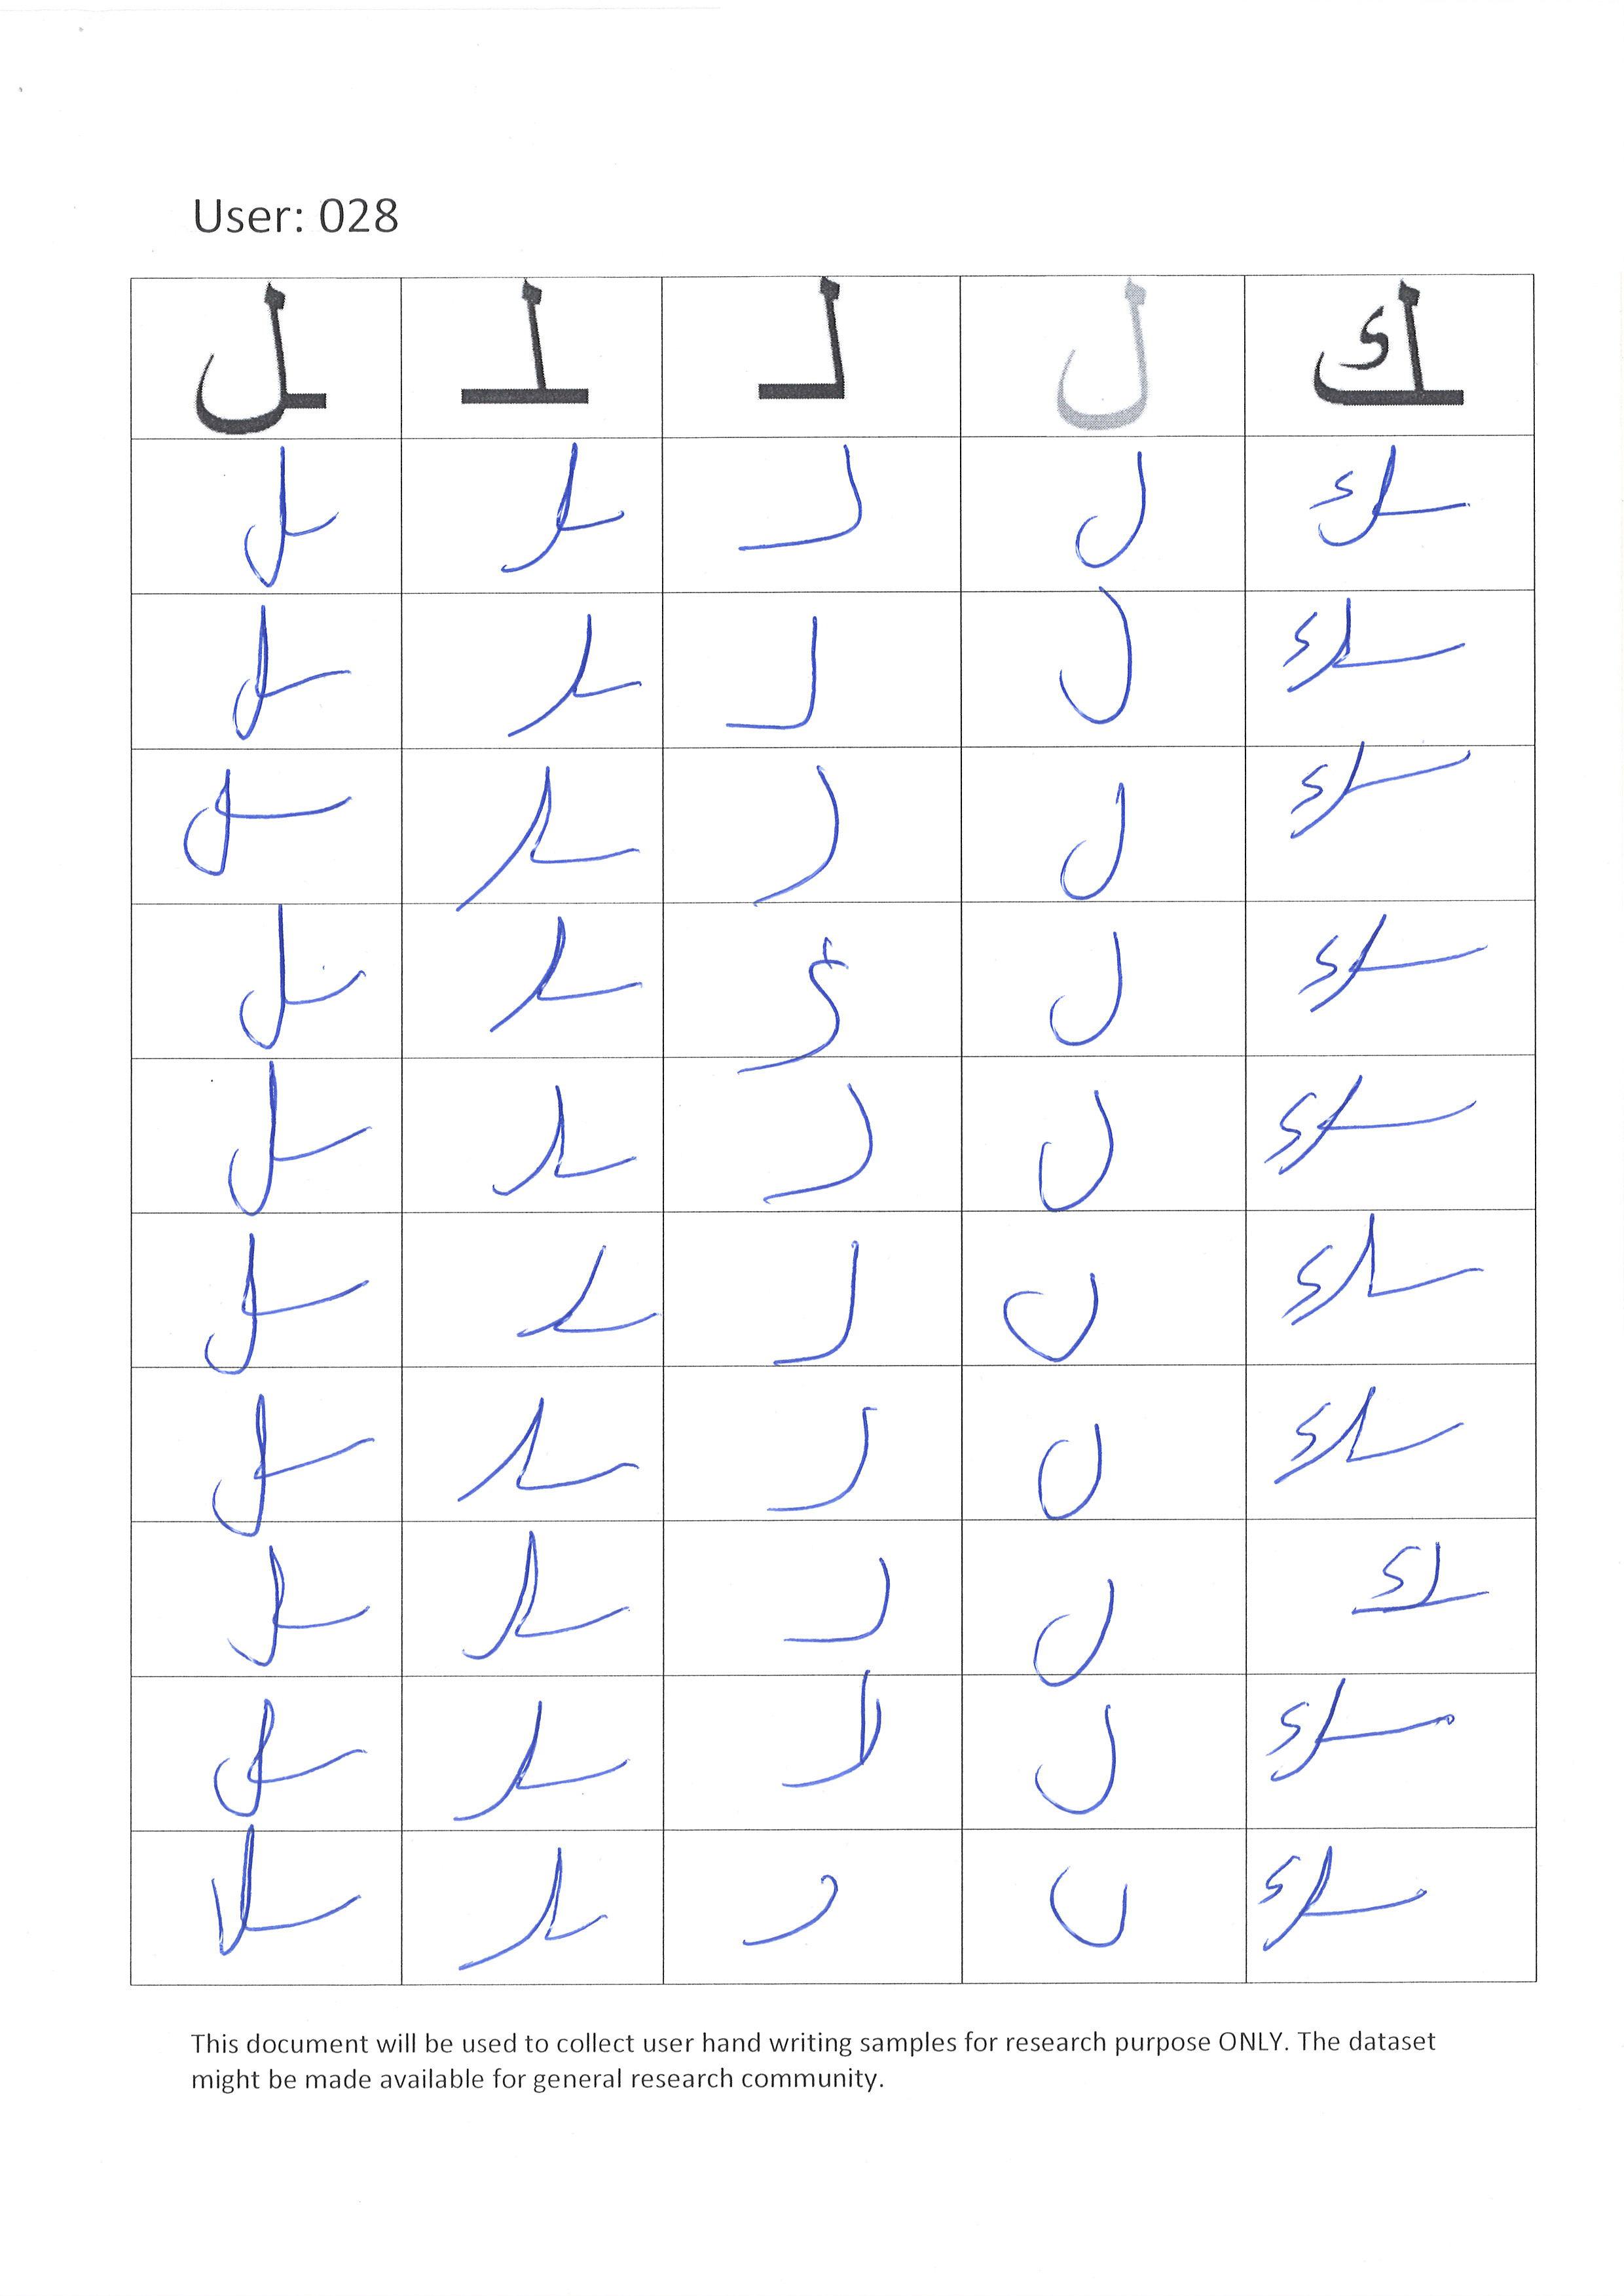 User: 028
ـل ـلـ لـ ل ـك
ـل ـلـ لـ ل ـك
ـل ـلـ لـ ل ـك
ـل ـلـ لـ ل ـك
ـل ـلـ ل ـك
ـل ـلـ لـ ل ـك
ـل ـلـ لـ ل ـك
ـل ـلـ لـ ل ـك
ـل ـلـ لـ ل ـك
ـل ـلـ لـ ل ـك
ـل ـلـ لـ ل ـك
This document will be used to collect user hand writing samples for research purpose ONLY. The dataset
might be made available for general research community.